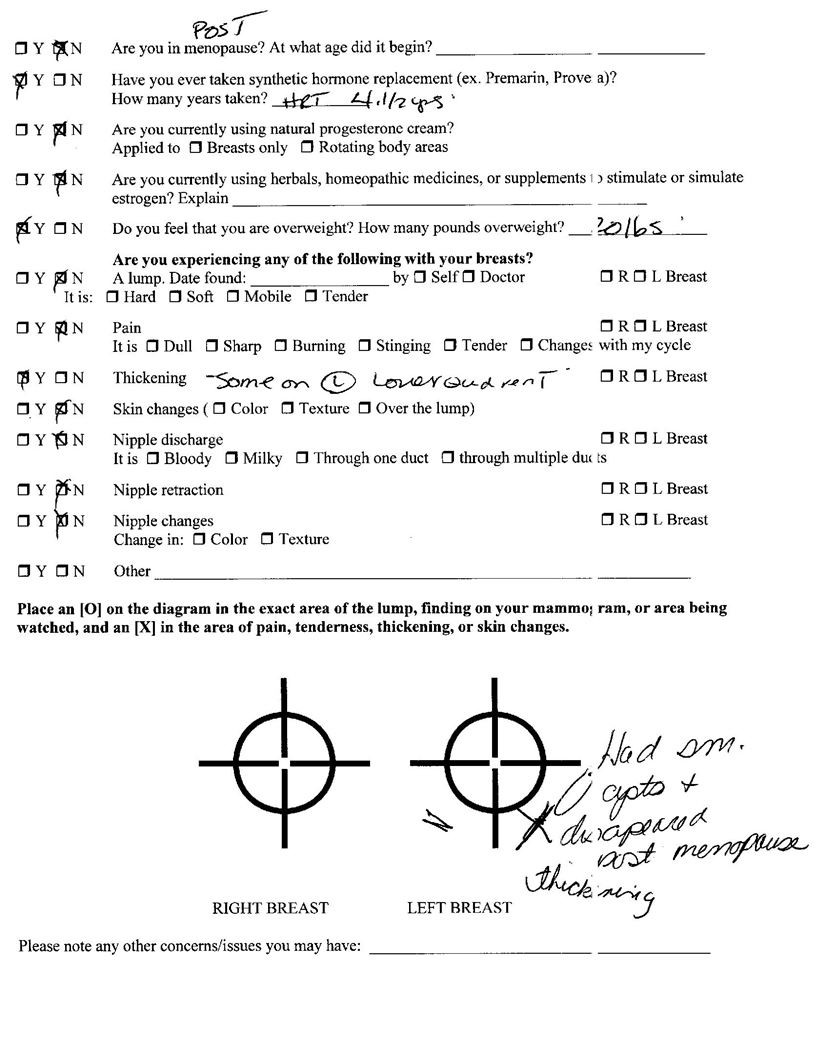 POST
☐ Y ☒ N Are you in menopause? At what age did it begin?
☒ Y ☐ N Have you ever taken synthetic hormone replacement (ex. Premarin, Prove a)?
How many years taken? HRT 4 1/2 yrs
☐ Y ☒ N Are you currently using natural progesterone cream?
Applied to ☐ Breasts only ☐ Rotating body areas
☐ Y ☒ N Are you currently using herbals, homeopathic medicines, or supplements to stimulate or simulate
estrogen? Explain
☒ Y ☐ N Do you feel that you are overweight? How many pounds overweight? 20 lbs
Are you experiencing any of the following with your breasts?
☐ Y ☒ N A lump. Date found: by ☐ Self ☐ Doctor ☐ R ☐ L Breast
It is: ☐ Hard ☐ Soft ☐ Mobile ☐ Tender
☐ Y ☒ N Pain ☐ R ☐ L Breast
It is ☐ Dull ☐ Sharp ☐ Burning ☐ Stinging ☐ Tender ☐ Changes with my cycle
☒ Y ☐ N Thickening - Some on Ⓛ Lower ☐ R ☐ L Breast
☐ Y ☒ N Skin changes ( ☐ Color ☐ Texture ☐ Over the lump)
☐ Y ☒ N Nipple discharge ☐ R ☐ L Breast
It is ☐ Bloody ☐ Milky ☐ Through one duct ☐ through multiple ducts
☐ Y ☒ N Nipple retraction ☐ R ☐ L Breast
☐ Y ☒ N Nipple changes ☐ R ☐ L Breast
Change in: ☐ Color ☐ Texture
☐ Y ☐ N Other
Place an [O] on the diagram in the exact area of the lump, finding on your mammogram, or area being
watched, and an [X] in the area of pain, tenderness, thickening, or skin changes.
Had sm.
cysts +
disapeared
post menopause
thickening
N
X
RIGHT BREAST LEFT BREAST
Please note any other concerns/issues you may have: